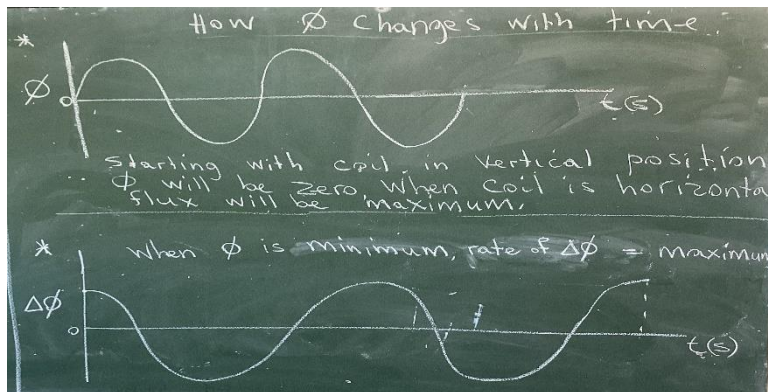 How Ø Changes with time.
*
Ø
o
t(s)
Starting with coil in vertical position
Ø will be zero, when coil is horizonta
flux will be maximum.
* When Ø is minimum, rate of ΔØ = maximum
ΔØ
o
t(s)